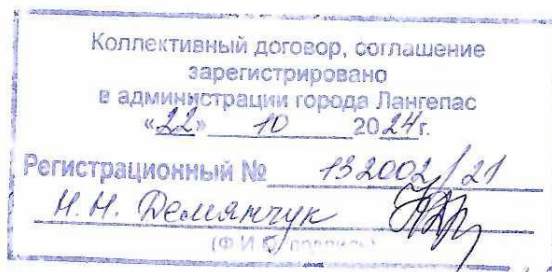 Коллективный договор, соглашение
зарегистрировано
в администрации города Лангепас
«22» 10 2024г.
Регистрационный № 132002/21
Н.Н. Демянчук
(Ф И О, подпись)